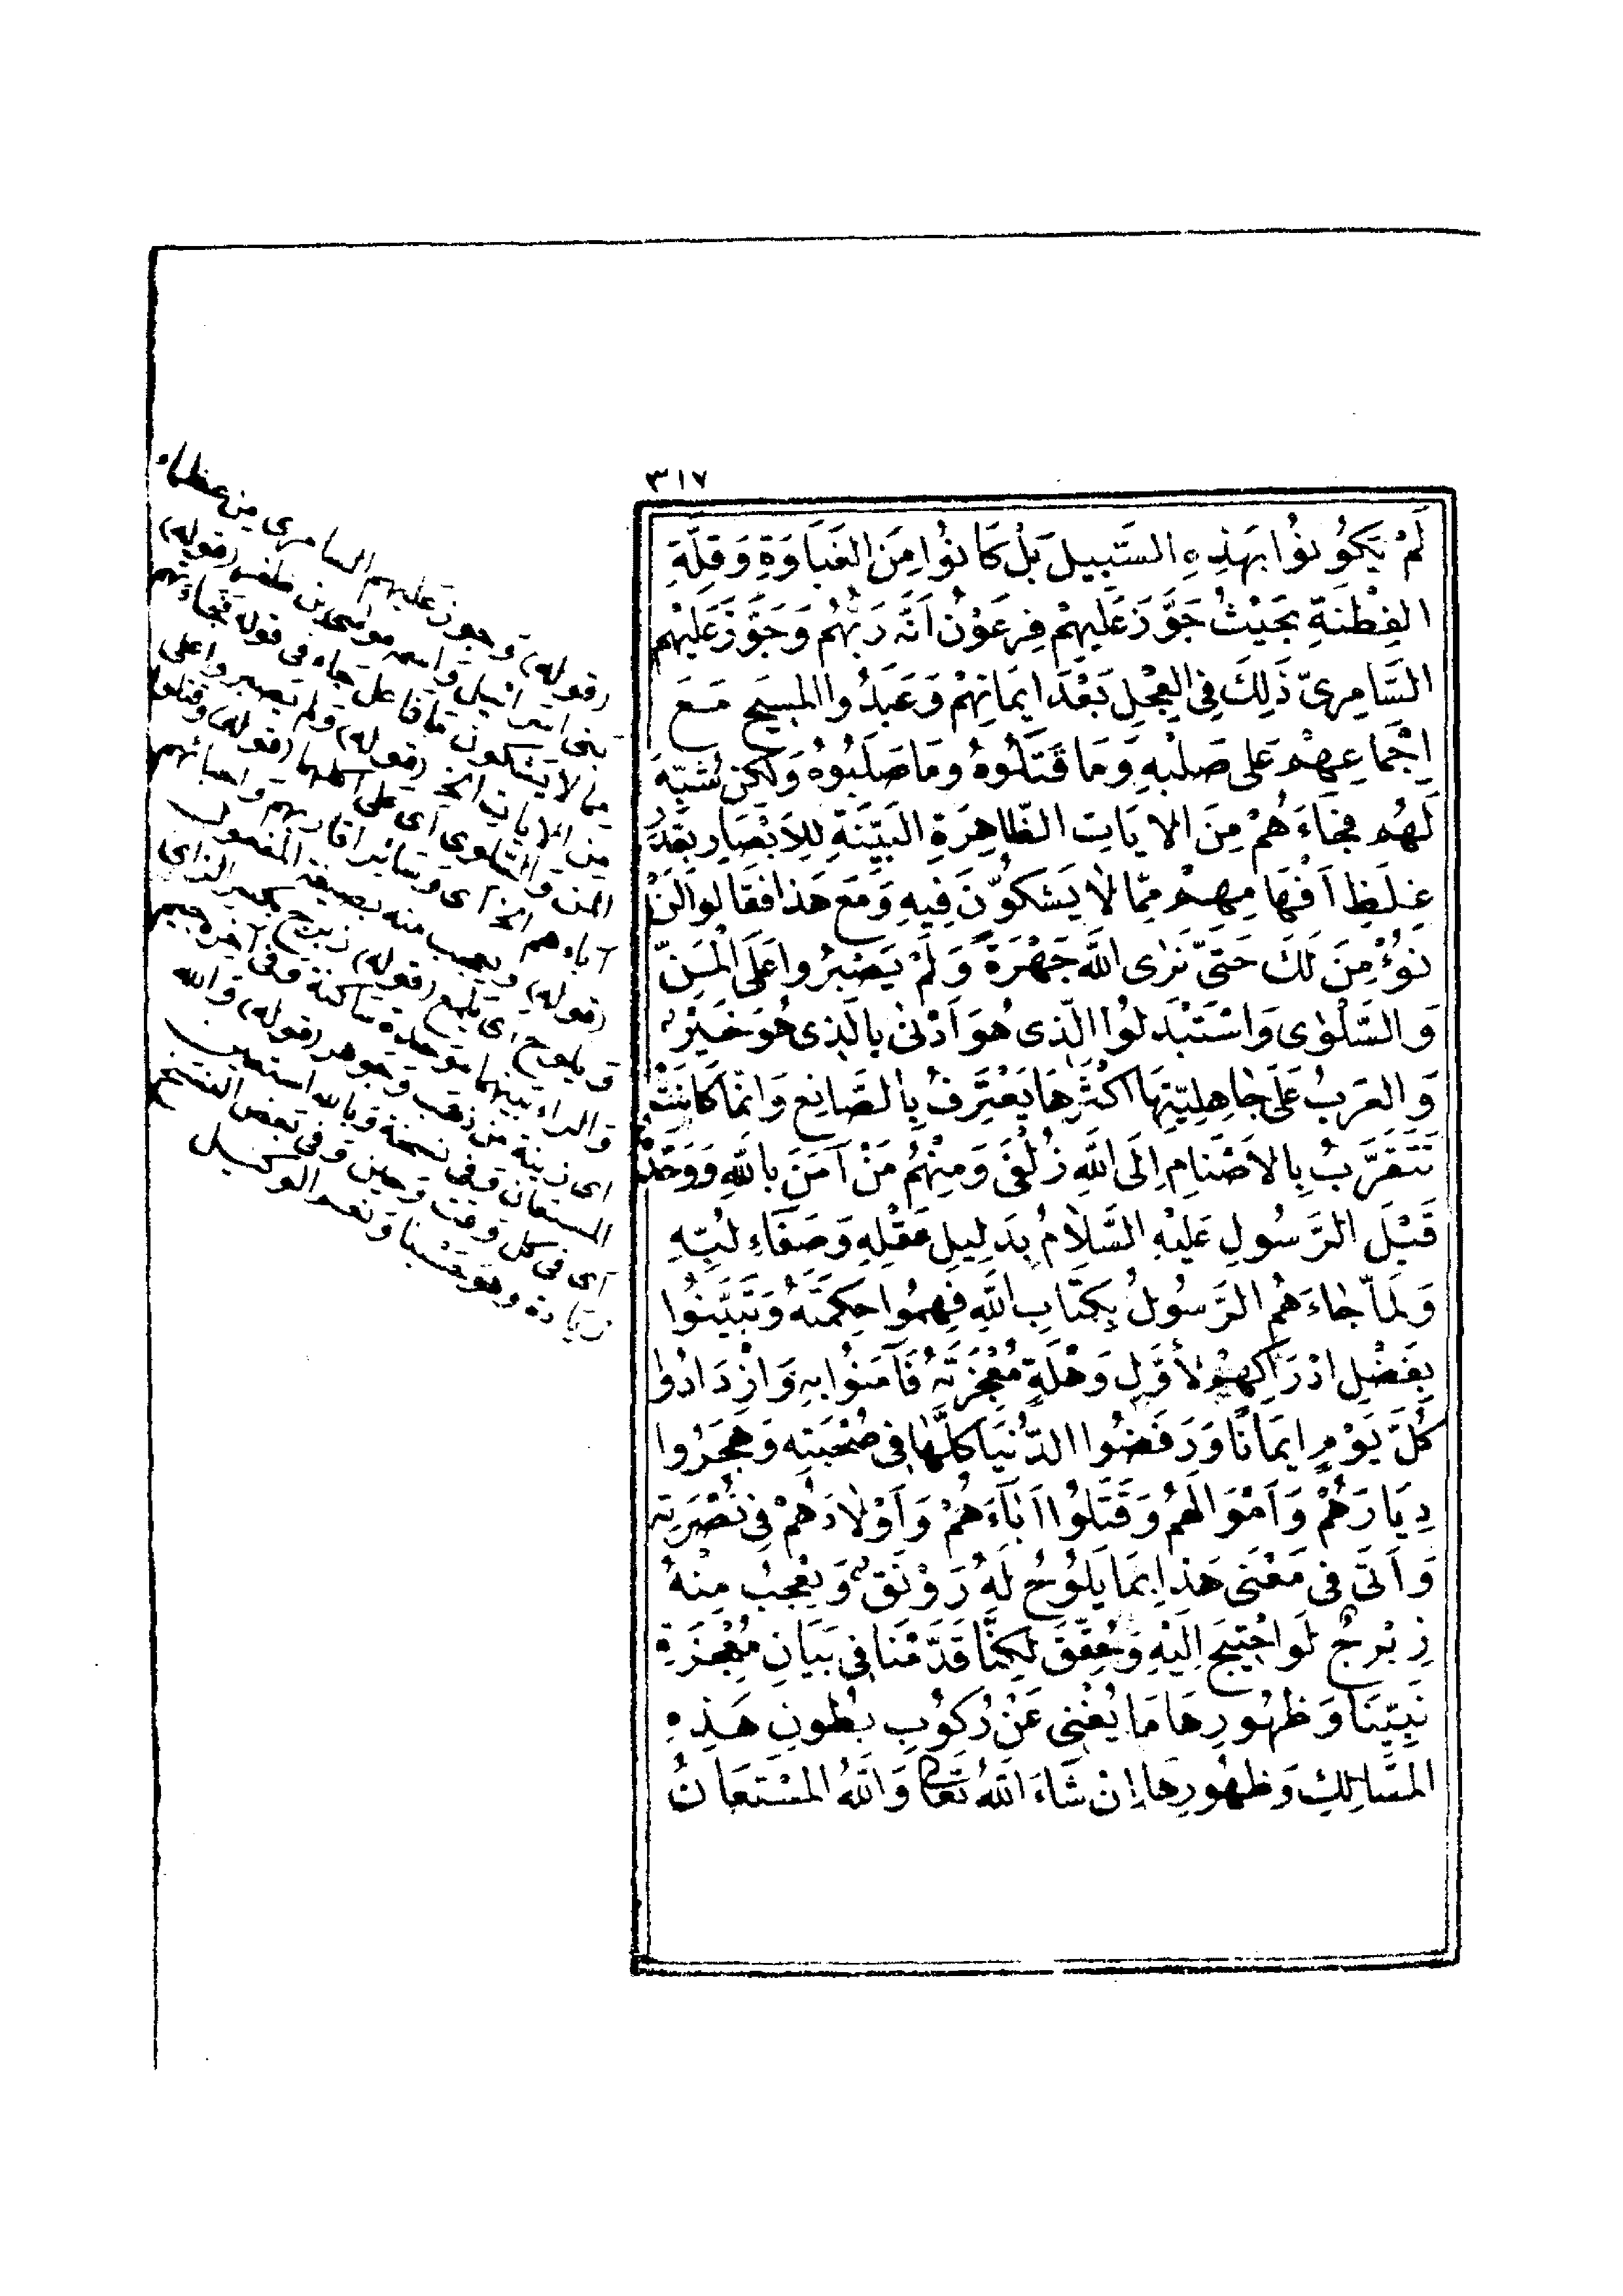 ٣١٧
لَمْ يَكُونُوا بِهَذِهِ السَّبِيلِ بَلْ كَانُوا مِنَ الْغَبَاوَةِ وَقِلَّةِ
الفِطْنَةِ بِحَيْثُ جَوَّزَ عَلَيْهِمْ فِرْعَوْنُ اَنَّهُ رَبُّهُمْ وَجَوَّزَ عَلَيْهِمْ
السَّامِرِىّ ذَلِكَ فِى العِجْلِ بَعْدَ ايمَانِهِمْ وَعَبَدُوا المَسِيحَ مَعَ
اِجْمَاعِهِمْ عَلَى صَلْبِهِ وَمَا قَتَلُوهُ وَمَا صَلَبُوهُ وَلَكِنْ شُبِّهَ
لَهُمْ فَجَاءَهُمْ مِنَ الايَاتِ الظَّاهِرَةِ البَيِّنَةِ لِلاَبْصَارِ بِقَدْرِ
غِلَظِ اَفْهَامِهِمْ مِمَّا لاَ يَشُكُّونَ فِيهِ وَمَعَ هَذَا فَقَالُوا لَنْ
نُؤْمِنَ لَكَ حَتَّى نَرَى اللهَ جَهْرَةً وَلَمْ يَصْبِرُوا عَلَى الْمَنِّ
وَالسَّلْوٰى وَاسْتَبْدَلُوا الَّذِى هُوَ اَدْنٰى بِالَّذِى هُوَ خَيْرٌ
وَالعَرَبُ عَلَى جَاهِلِيَّتِهَا اَكْثَرُهَا يَعْتَرِفُ بِالصَّانِعِ وَاِنَّمَا كَانَتْ
تَتَقَرَّبُ بِالاَصْنَامِ اِلَى اللهِ زُلْفَى وَمِنْهُمْ مَنْ آمَنَ بِاللهِ وَوَحَّدَهُ
قَبْلَ الرَّسُولِ عَلَيْهِ السَّلاَمُ بِدَلِيلِ عَقْلِهِ وَصَفَاءِ لُبِّهِ
وَلَمَّا جَاءَهُمُ الرَّسُولُ بِكِتَابِ اللهِ فَهِمُوا حِكْمَتَهُ وَتَبَيَّنُوا
بِفَضْلِ اِدْرَاكِهِمْ لِأَوَّلِ وَهْلَةٍ مُعْجِزَتَهُ فَآمَنُوا بِهِ وَازْدَادُوا
كُلَّ يَوْمٍ ايمَانًا وَرَفَضُوا الدُّنْيَا كُلَّهَا فِى صُحْبَتِهِ وَهَجَرُوا
دِيَارَهُمْ وَاَمْوَالَهُمْ وَقَتَلُوا اٰبَاءَهُمْ وَاَوْلاَدَهُمْ فِى نُصْرَتِهِ
وَاَتَى فِى مَعْنَى هَذَا بِمَا يَلُوحُ لَهُ رَوْنَقٌ وَيُعْجَبُ مِنْهُ
زِبْرِجٌ لَوِ احْتِيجَ اِلَيْهِ وَحُقِّقَ لَكِنَّا قَدَّمْنَا فِى بَيَانِ مُعْجِزَةِ
نَبِيِّنَا وَظُهُورِهَا مَا يُغْنِى عَنْ رُكُوبِ بُطُونِ هَذِهِ
المَسَالِكِ وَظُهُورِهَا اِنْ شَاءَ اللهُ تَعَالَى وَاللهُ المُسْتَعَانُ
(قوله) وجوز عليهم السامرى من عظماء
بنى اسرائيل واسمه موسى بن ظفر (قوله)
مما لا يشكون فاعل جاء فى قوله فجاءهم
من الايات الخ (قوله) ولم يصبروا على
المن والسلوى اى على اكلهما (قوله) وقتلوا
آباءهم الخ اى وسائر اقاربهم واحبائهم
(قوله) ويعجب منه بصيغة المفعول
ويلوح اى يلمع (قوله) زبرج بكسر الزاى
والراء بينهما موحدة ساكنة وفى آخره جيم
اى زينة من ذهب وجوهر (قوله) والله
المستعان وفى نسخة وبالله استعين
اى فى كل وقت وحين وفى بعض النسخ
زيادة وهو حسبنا ونعم الوكيل